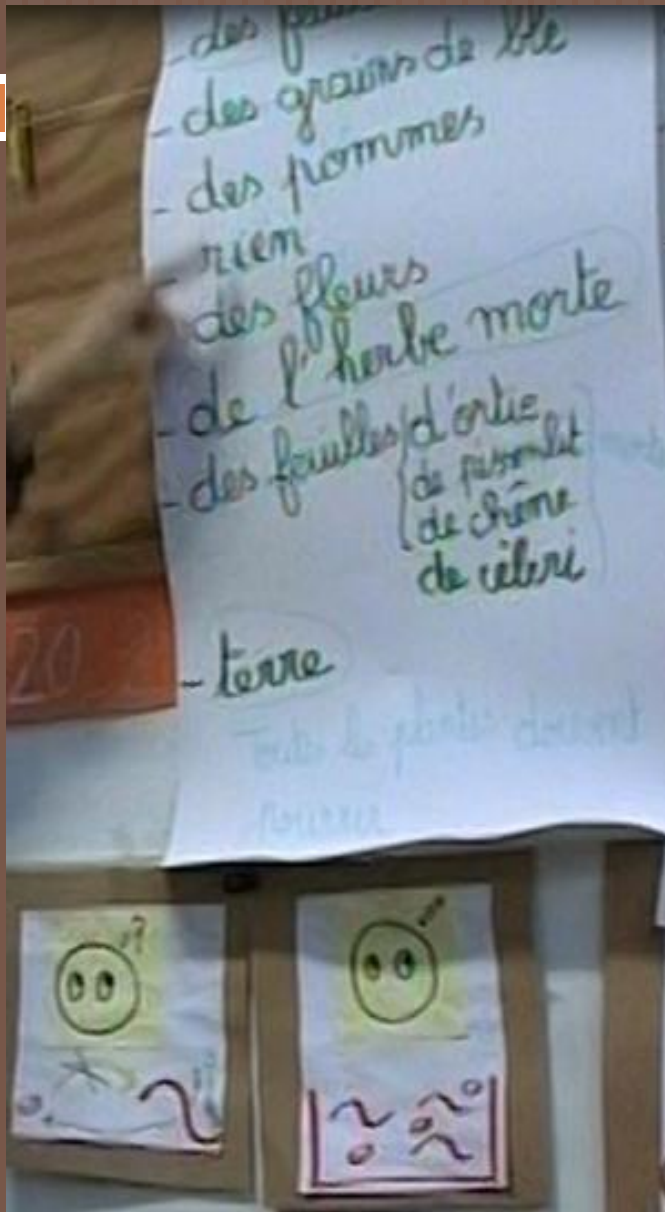 - des
- des grains de blé
- des pommes
- rien
des fleurs
- de l'herbe morte
- des feuilles d'ortie
de pissenlit
de chêne
de céleri
- terre
Toutes les plantes doivent
pourrir
20
?